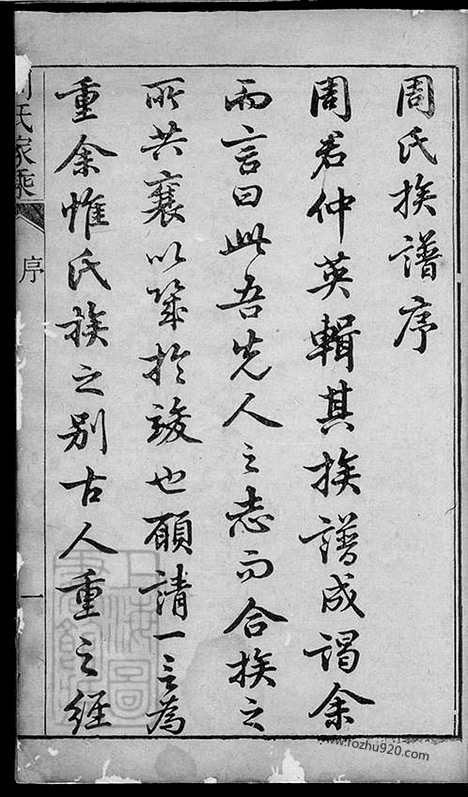 周氏族譜序
周君仲英輯其族譜成謁余
而言曰此吾先人之志而合族之
所共襄以底於竣也願請一言為
重余惟氏族之別古人重之經
周氏家乘
序
一
上海圖
書館藏
www.fozhu920.com